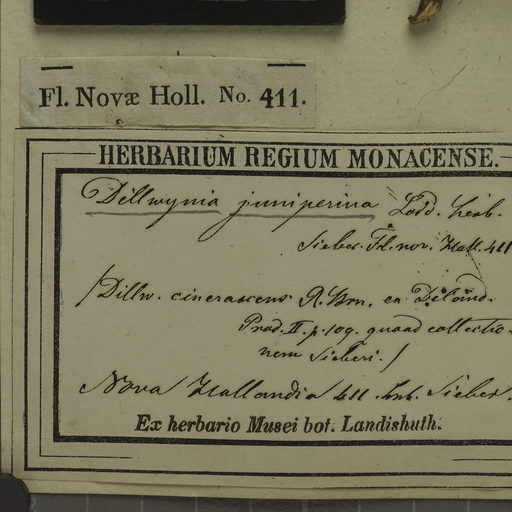 Fl. Novæ Holl. No. 411.
HERBARIUM REGIUM MONACENSE.
Dillwynia juniperina Lodd. herb.
Sieber. Fl. nov. Holl. 411
/Dillw. cinerascens R. Brn. ex
Prod. II. p. 109. quoad collectio-
nem Sieberi./
Nova Hollandia 411. Sieber.
Ex herbario Musei bot. Landishuth.